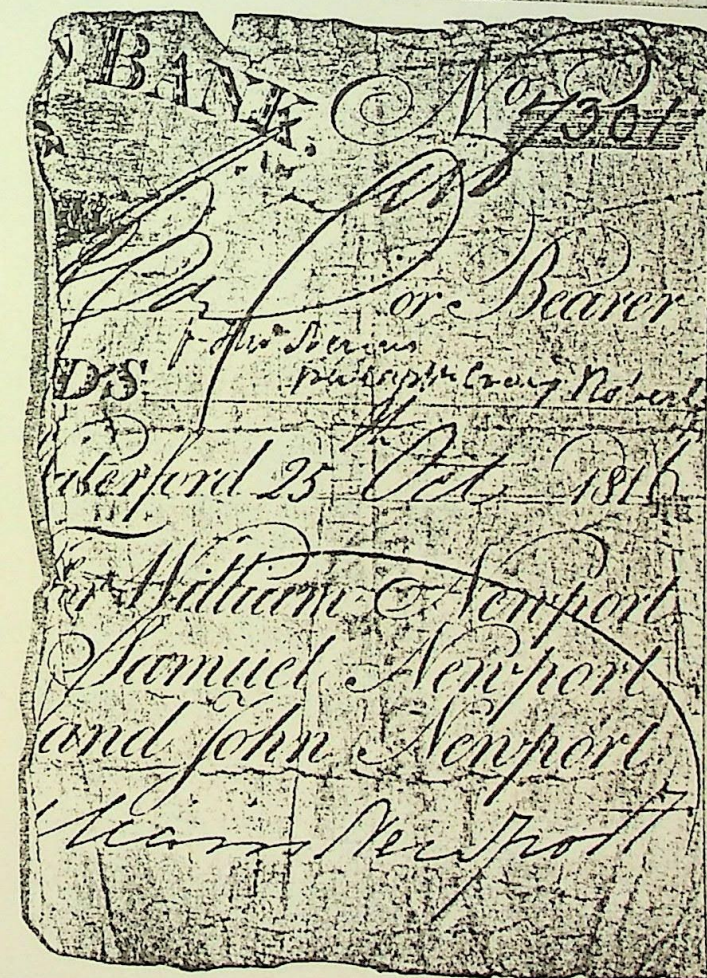 BANK. No 7301
or Bearer
DS
Waterford 25th Oct. 1816
For William Newport
Samuel Newport
and John Newport.
William Newport